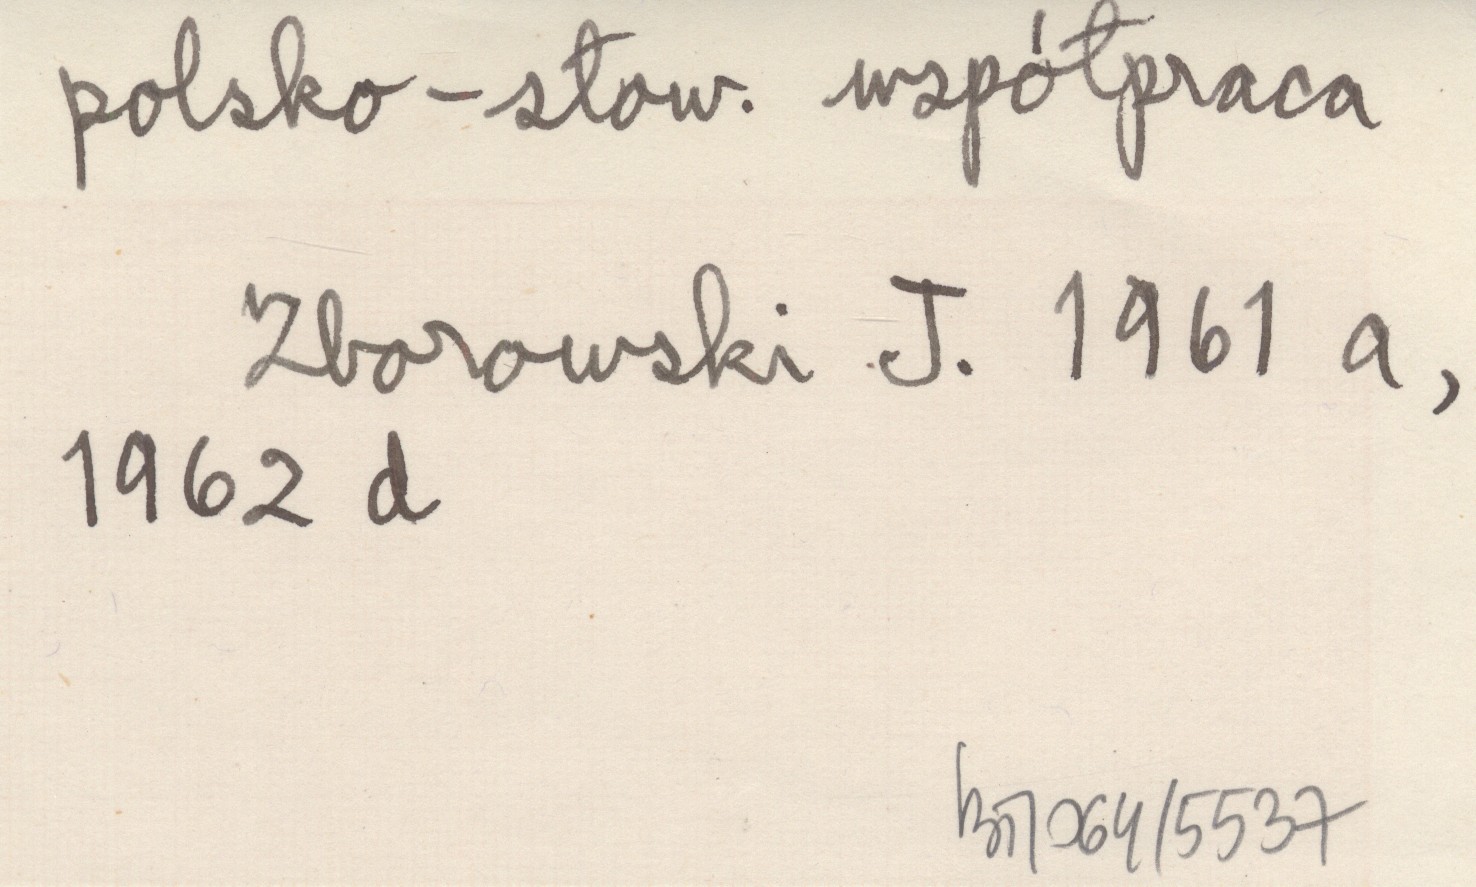 polsko-słow. współpraca
Zborowski J. 1961 a,
1962 d
064/5537